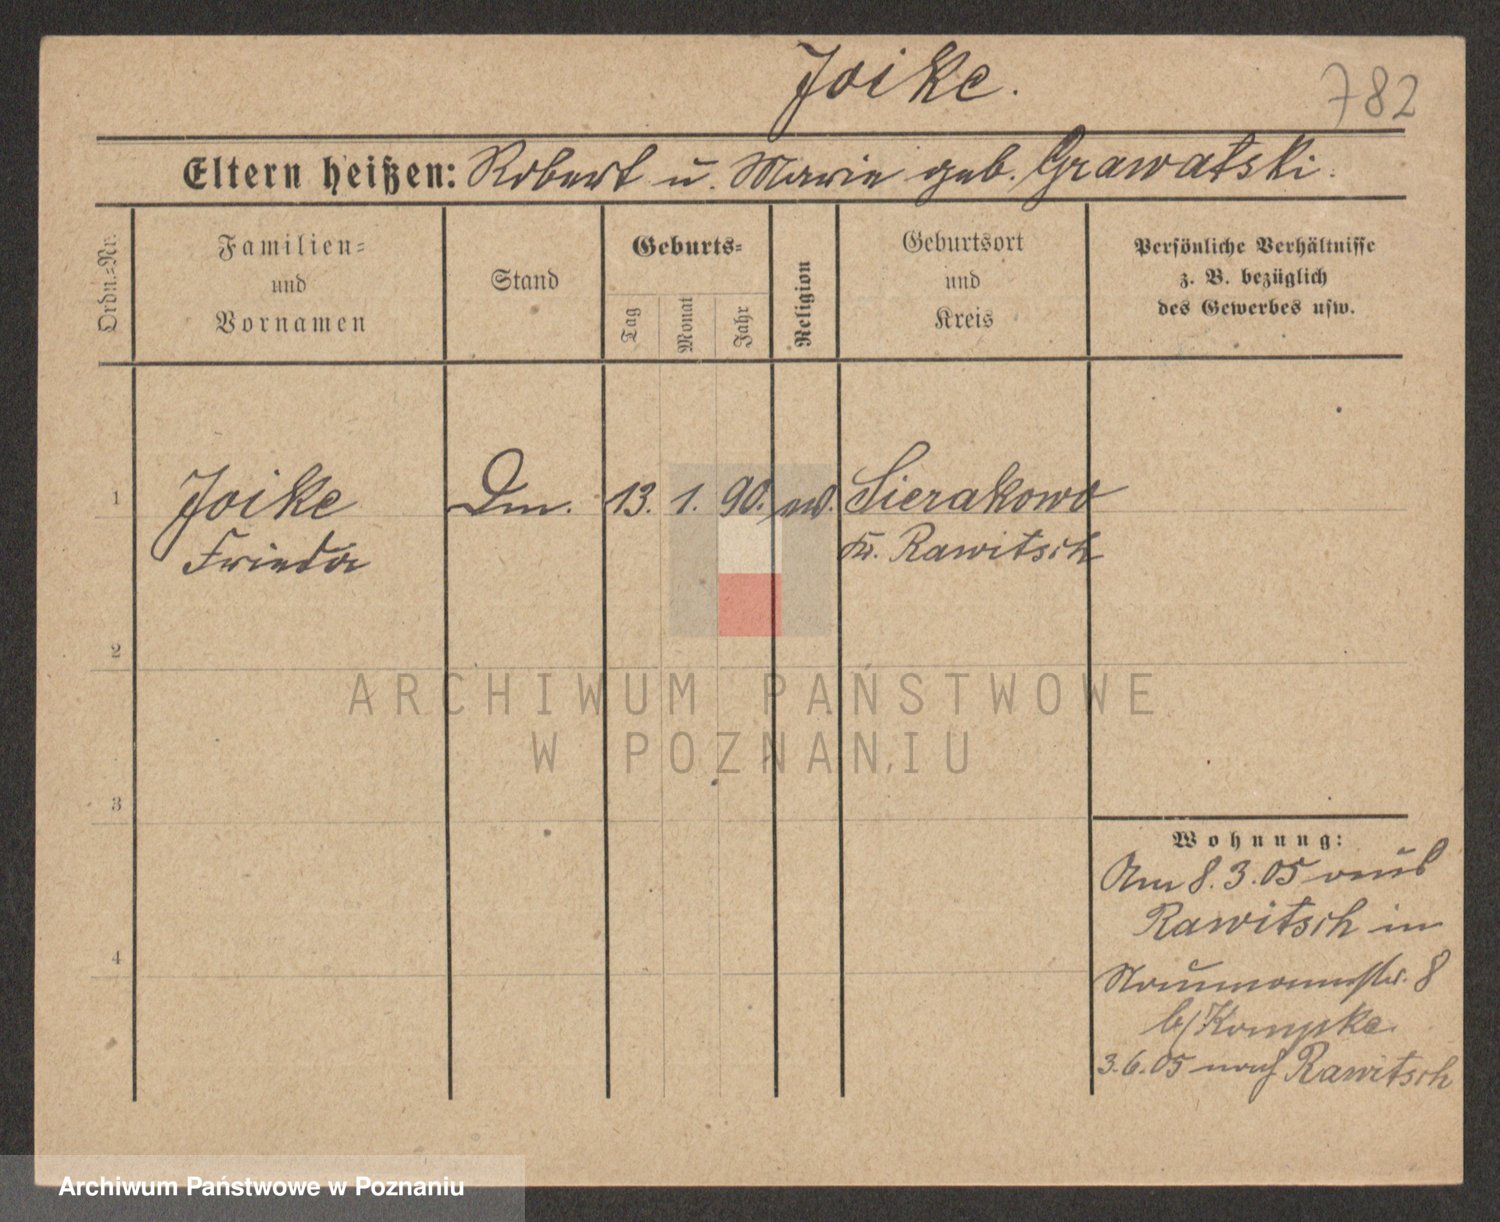 Joike.
782
Eltern heißen: Robert u. Marie geb. Grawatski.
Ordn.-Nr.
Familien-
und
Vornamen
Stand
Geburts-
Tag
Monat
Jahr
Religion
Geburtsort
und
Kreis
Persönliche Verhältnisse
z. B. bezüglich
des Gewerbes usw.
1 Joike Dm. 13. 1. 90. ev. Sierakowo
Frieda Kr. Rawitsch
2
ARCHIWUM PAŃSTWOWE
W POZNANIU
3
Wohnung:
Am 8.3.05 aus
Rawitsch in
4
Naumannstr. 8
b/
3.6.05 nach Rawitsch
Archiwum Państwowe w Poznaniu